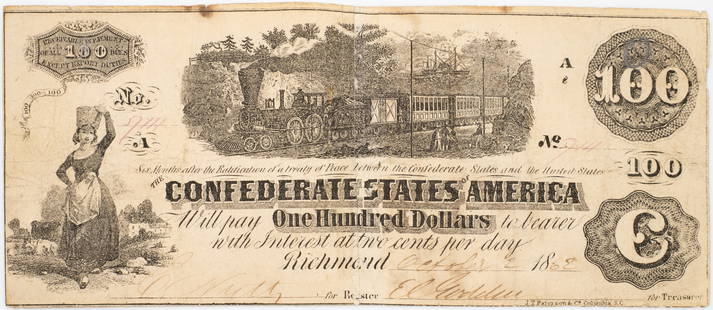 RECEIVABLE IN PAYMENT
OF ALL 100 DUES
EXCEPT EXPORT DUTIES
100 100 100
No.
A
A
100
No
100
Six Months after the Ratification of a treaty of Peace between the Confederate States and the United States
THE
CONFEDERATE STATES AMERICA
Will pay One Hundred Dollars to bearer
with Interest at two cents per day
Richmond 1862
C
for Register
for Treasurer
J. T. Paterson & Co Columbia, S.C.